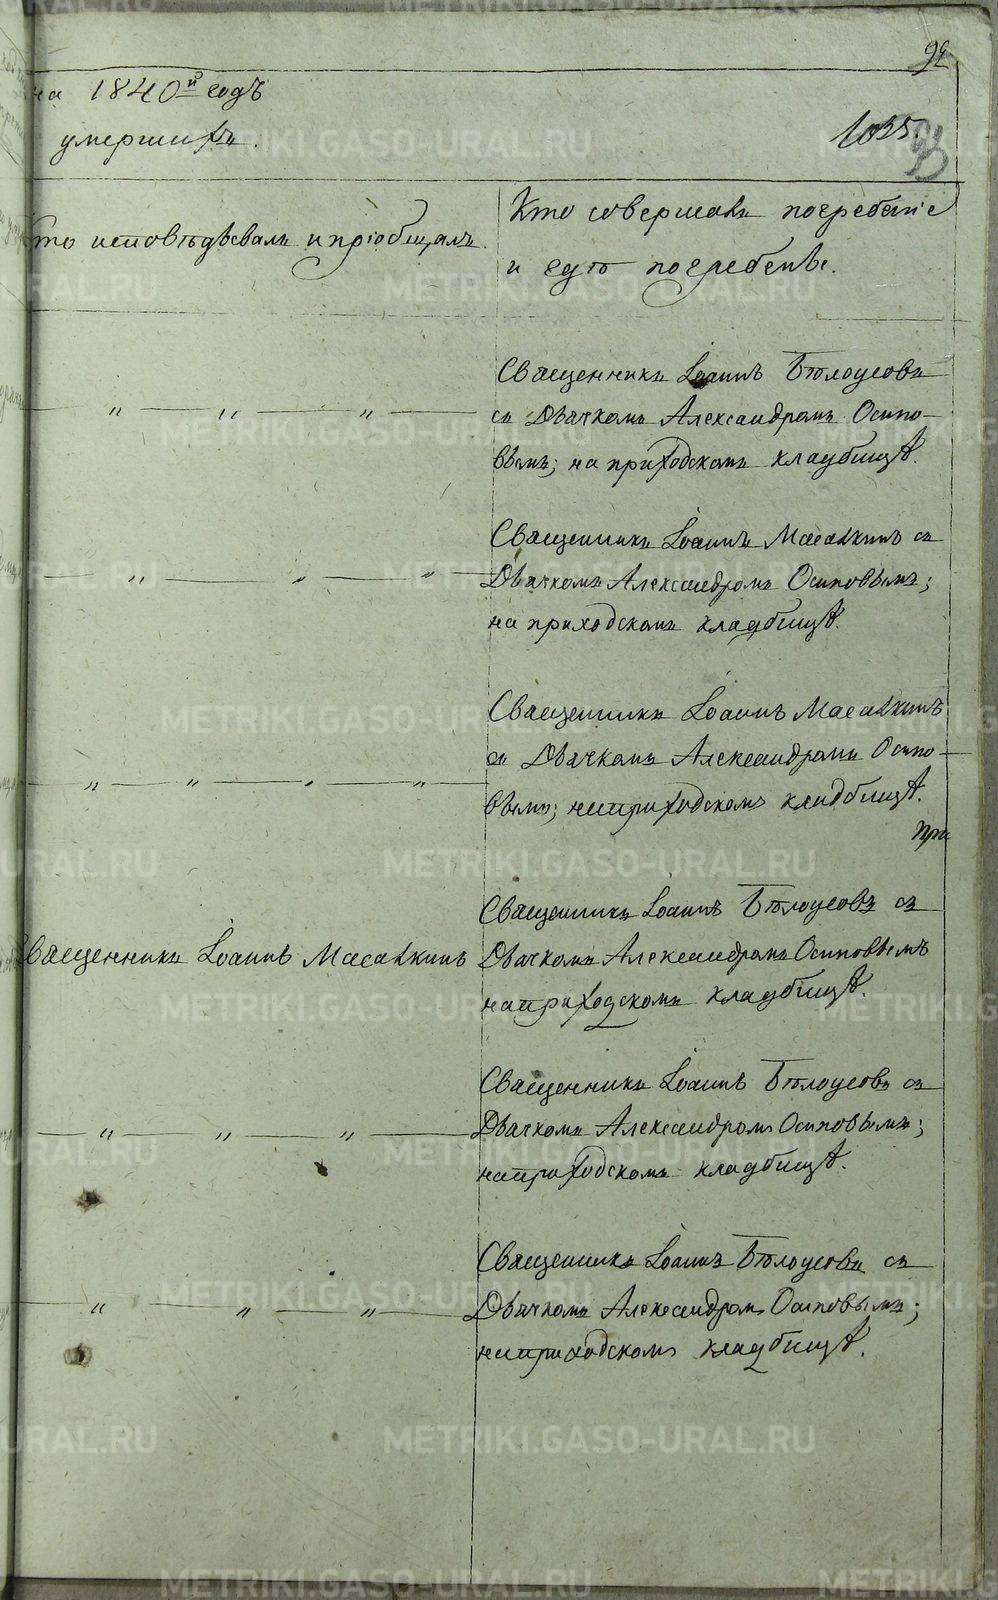 99
на 1840й годъ
умершихъ.
1035
93
Кто исповѣдывалъ и пріобщалъ.
Кто совершалъ погребенiе
и гдѣ погребены.
Священникъ Іоаннъ Бѣлоусовъ
съ Дьячкомъ Александромъ Осипо-
вымъ; на приходскомъ кладбищѣ.
Священникъ Іоаннъ Масалкинъ съ
Дьячкомъ Александромъ Осиповымъ;
на приходскомъ кладбищѣ.
Священникъ Іоаннъ Масалкинъ
съ Дьячкомъ Александромъ Осипо-
вымъ; на приходскомъ кладбищѣ.
При
Священникъ Іоаннъ Масалкинъ
Священникъ Іоаннъ Бѣлоусовъ съ
Дьячкомъ Александромъ Осиповымъ
на приходскомъ кладбищѣ.
Священникъ Іоаннъ Бѣлоусовъ съ
Дьячкомъ Александромъ Осиповымъ;
на приходскомъ кладбищѣ.
Священникъ Іоаннъ Бѣлоусовъ съ
Дьячкомъ Александромъ Осиповымъ;
на приходскомъ кладбищѣ.
METRIKI.GASO-URAL.RU